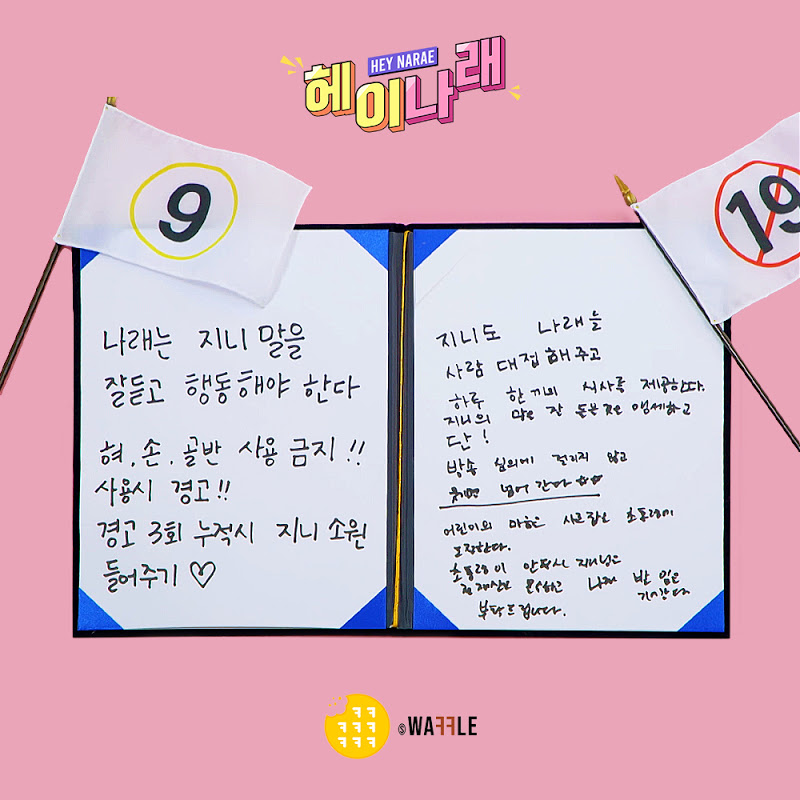 HEY NARAE
헤이나래
9
19
나래는 지니 말을
잘듣고 행동해야 한다
혀, 손, 골반 사용 금지!!
사용시 경고!!
경고 3회 누적시 지니 소원
들어주기 ♡
지니도 나래를
사람 대접 해주고
하루 한 끼의 식사를 제공한다.
지니의 말은 잘 맹세하고
단!
방송 심의에 걸리지 않고
넘어 간다 ☆☆
어린이의 마음을 사로잡은 초통령에
도전한다.
초통령이 안될시
부탁드립니다.
ㅋㅋ
ㅋㅋㅋ
ㅋㅋㅋ
WAFFLE